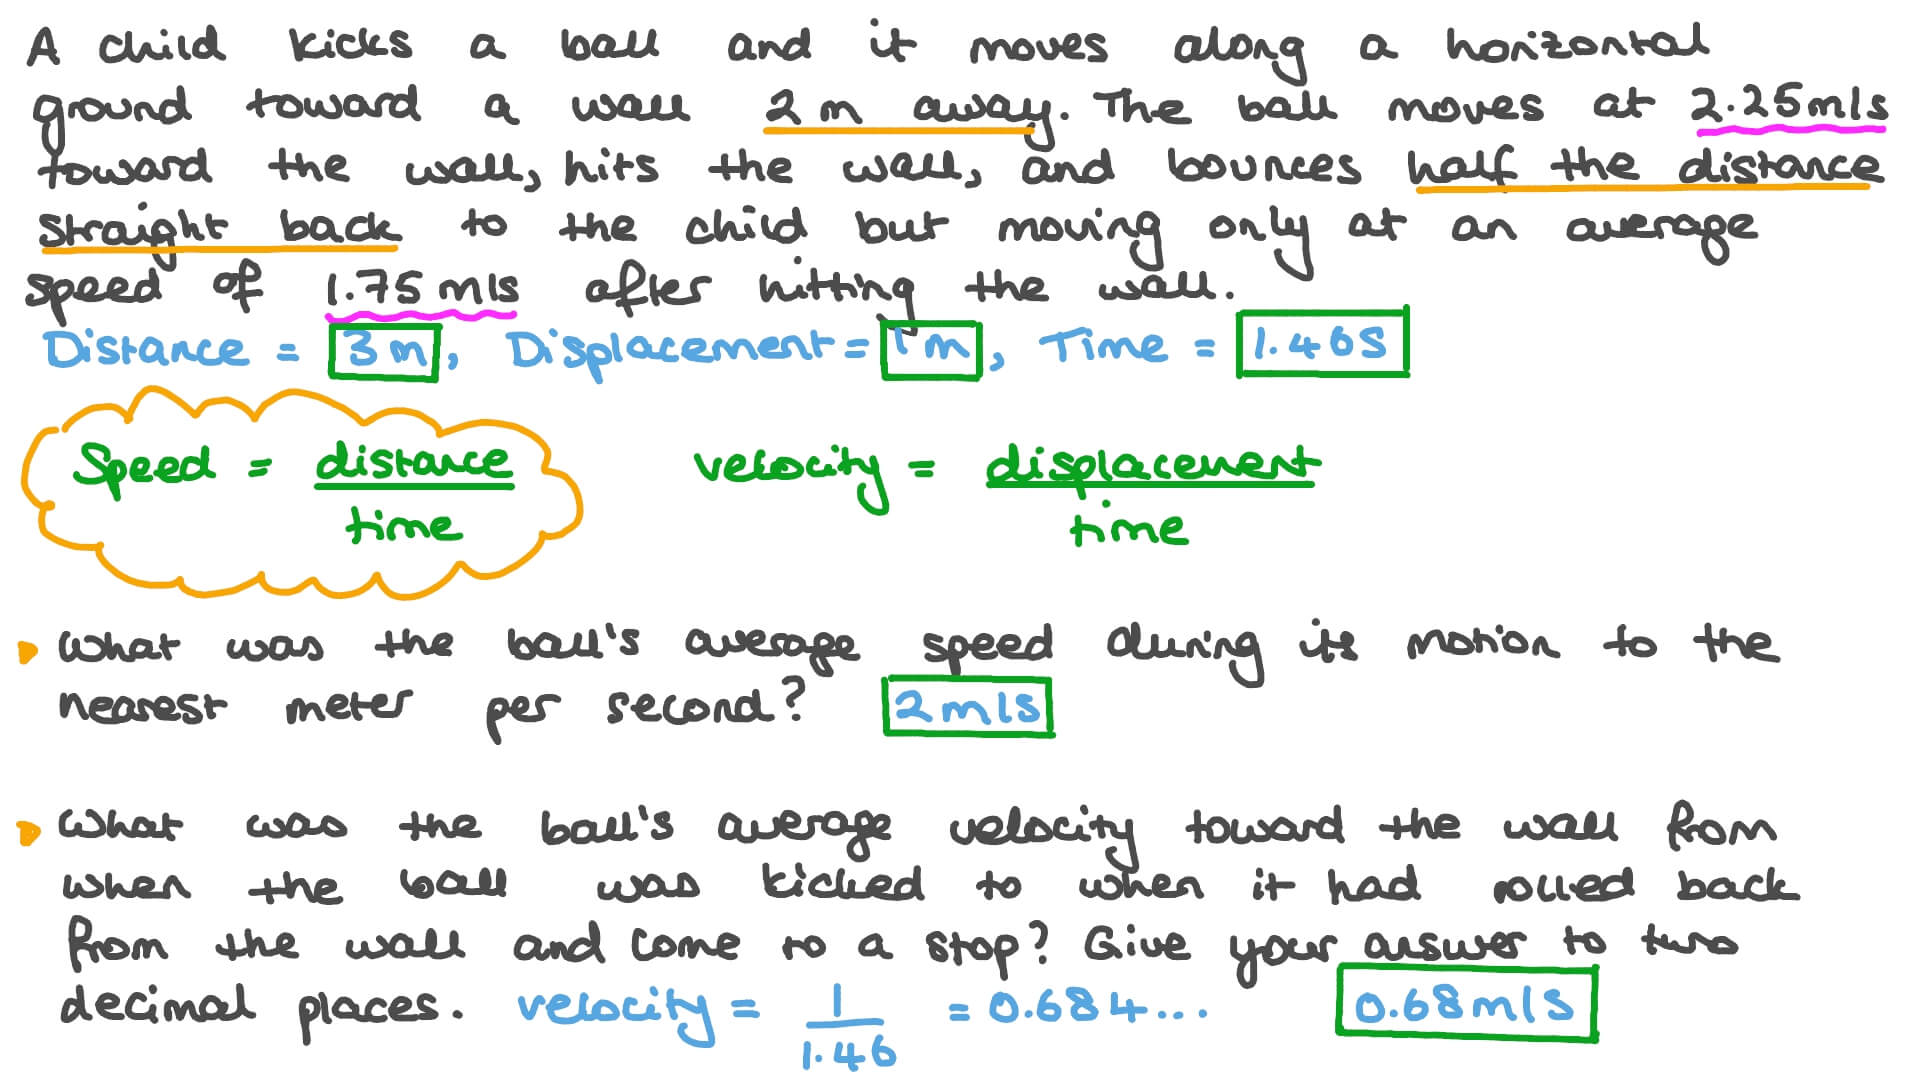 A child kicks a ball and it moves along a horizontal
ground toward a wall 2 m away. The ball moves at 2.25 m/s
toward the wall, hits the wall, and bounces half the distance
straight back to the child but moving only at an average
speed of 1.75 m/s after hitting the wall.
Distance = 3 m, Displacement = 1 m, Time = 1.46 s
Speed = distance / time velocity = displacement / time
What was the ball's average speed during its motion to the
nearest meter per second? 2 m/s
What was the ball's average velocity toward the wall from
when the ball was kicked to when it had rolled back
from the wall and come to a stop? Give your answer to two
decimal places. velocity = 1 / 1.46 = 0.684... 0.68 m/s